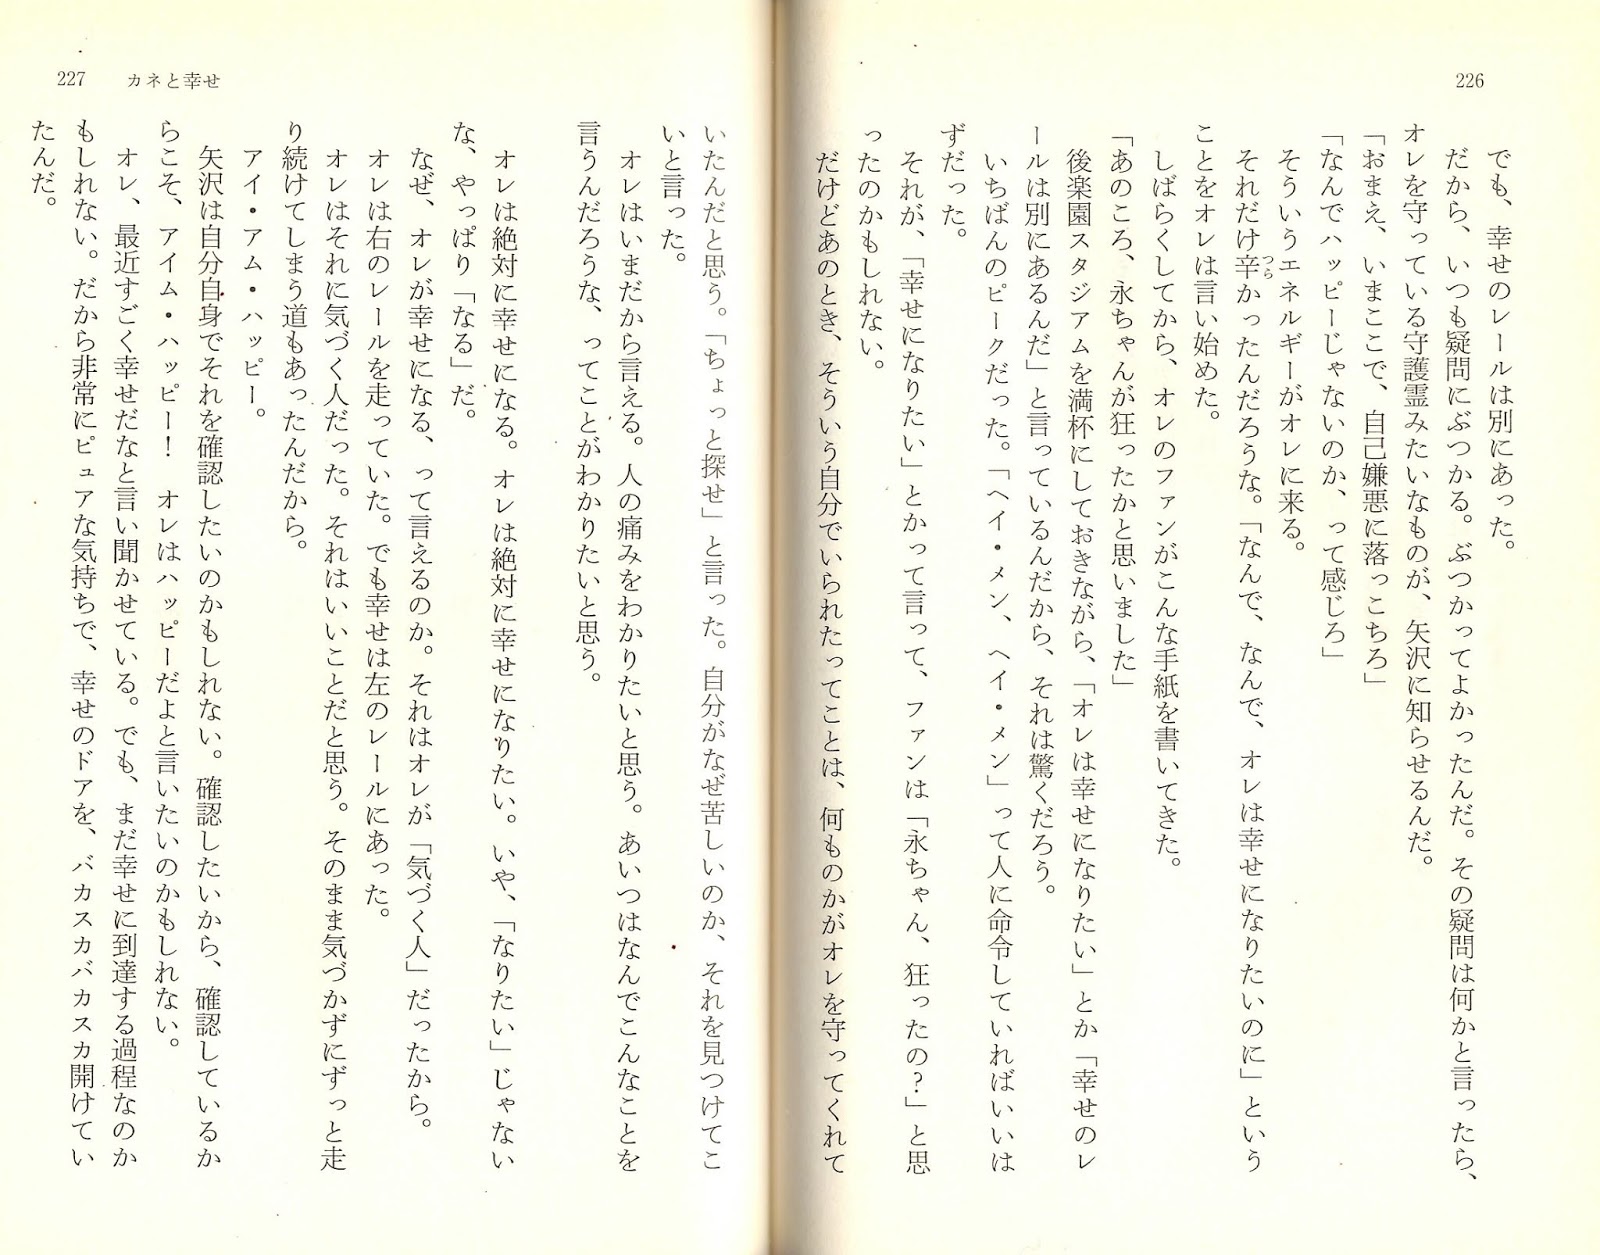 226
でも、幸せのレールは別にあった。
だから、いつも疑問にぶつかる。ぶつかってよかったんだ。その疑問は何かと言ったら、
オレを守っている守護霊みたいなものが、矢沢に知らせるんだ。
「おまえ、いまここで、自己嫌悪に落っこちろ」
「なんでハッピーじゃないのか、って感じろ」
そういうエネルギーがオレに来る。
それだけ辛かったんだろうな。「なんで、なんで、オレは幸せになりたいのに」という
つら
ことをオレは言い始めた。
しばらくしてから、オレのファンがこんな手紙を書いてきた。
「あのころ、永ちゃんが狂ったかと思いました」
後楽園スタジアムを満杯にしておきながら、「オレは幸せになりたい」とか「幸せのレ
ールは別にあるんだ」と言っているんだから、それは驚くだろう。
いちばんのピークだった。「ヘイ・メン、ヘイ・メン」って人に命令していればいいは
ずだった。
それが、「幸せになりたい」とかって言って、ファンは「永ちゃん、狂ったの?」と思
ったのかもしれない。
だけどあのとき、そういう自分でいられたってことは、何ものかがオレを守ってくれて
227 カネと幸せ
いたんだと思う。「ちょっと探せ」と言った。自分がなぜ苦しいのか、それを見つけてこ
いと言った。
オレはいまだから言える。人の痛みをわかりたいと思う。あいつはなんでこんなことを
言うんだろうな、ってことがわかりたいと思う。
オレは絶対に幸せになる。オレは絶対に幸せになりたい。いや、「なりたい」じゃない
な、やっぱり「なる」だ。
なぜ、オレが幸せになる、って言えるのか。それはオレが「気づく人」だったから。
オレは右のレールを走っていた。でも幸せは左のレールにあった。
オレはそれに気づく人だった。それはいいことだと思う。そのまま気づかずにずっと走
り続けてしまう道もあったんだから。
アイ・アム・ハッピー。
矢沢は自分自身でそれを確認したいのかもしれない。確認したいから、確認しているか
らこそ、アイム・ハッピー! オレはハッピーだよと言いたいのかもしれない。
オレ、最近すごく幸せだなと言い聞かせている。でも、まだ幸せに到達する過程なのか
もしれない。だから非常にピュアな気持ちで、幸せのドアを、バカスカバカスカ開けてい
たんだ。